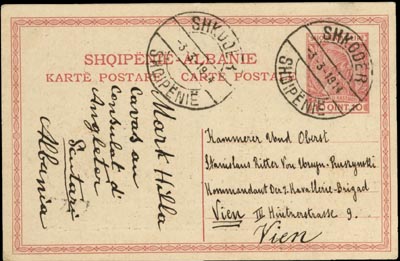 SHQIPËNIE-ALBANIE
KARTË POSTARE CARTE POSTALE
SHKODËR
SHQIPËNIE
SHKODËR
SHQIPËNIE
QINT. 10
Mark Hilla
Cavas au
Consulat d'
Angleter
Scutari
Albania
Kammerer und Oberst
Stanislaus Ritter von
Kommandant der 2. Kavallerie-Brigad
Wien III 9.
Wien